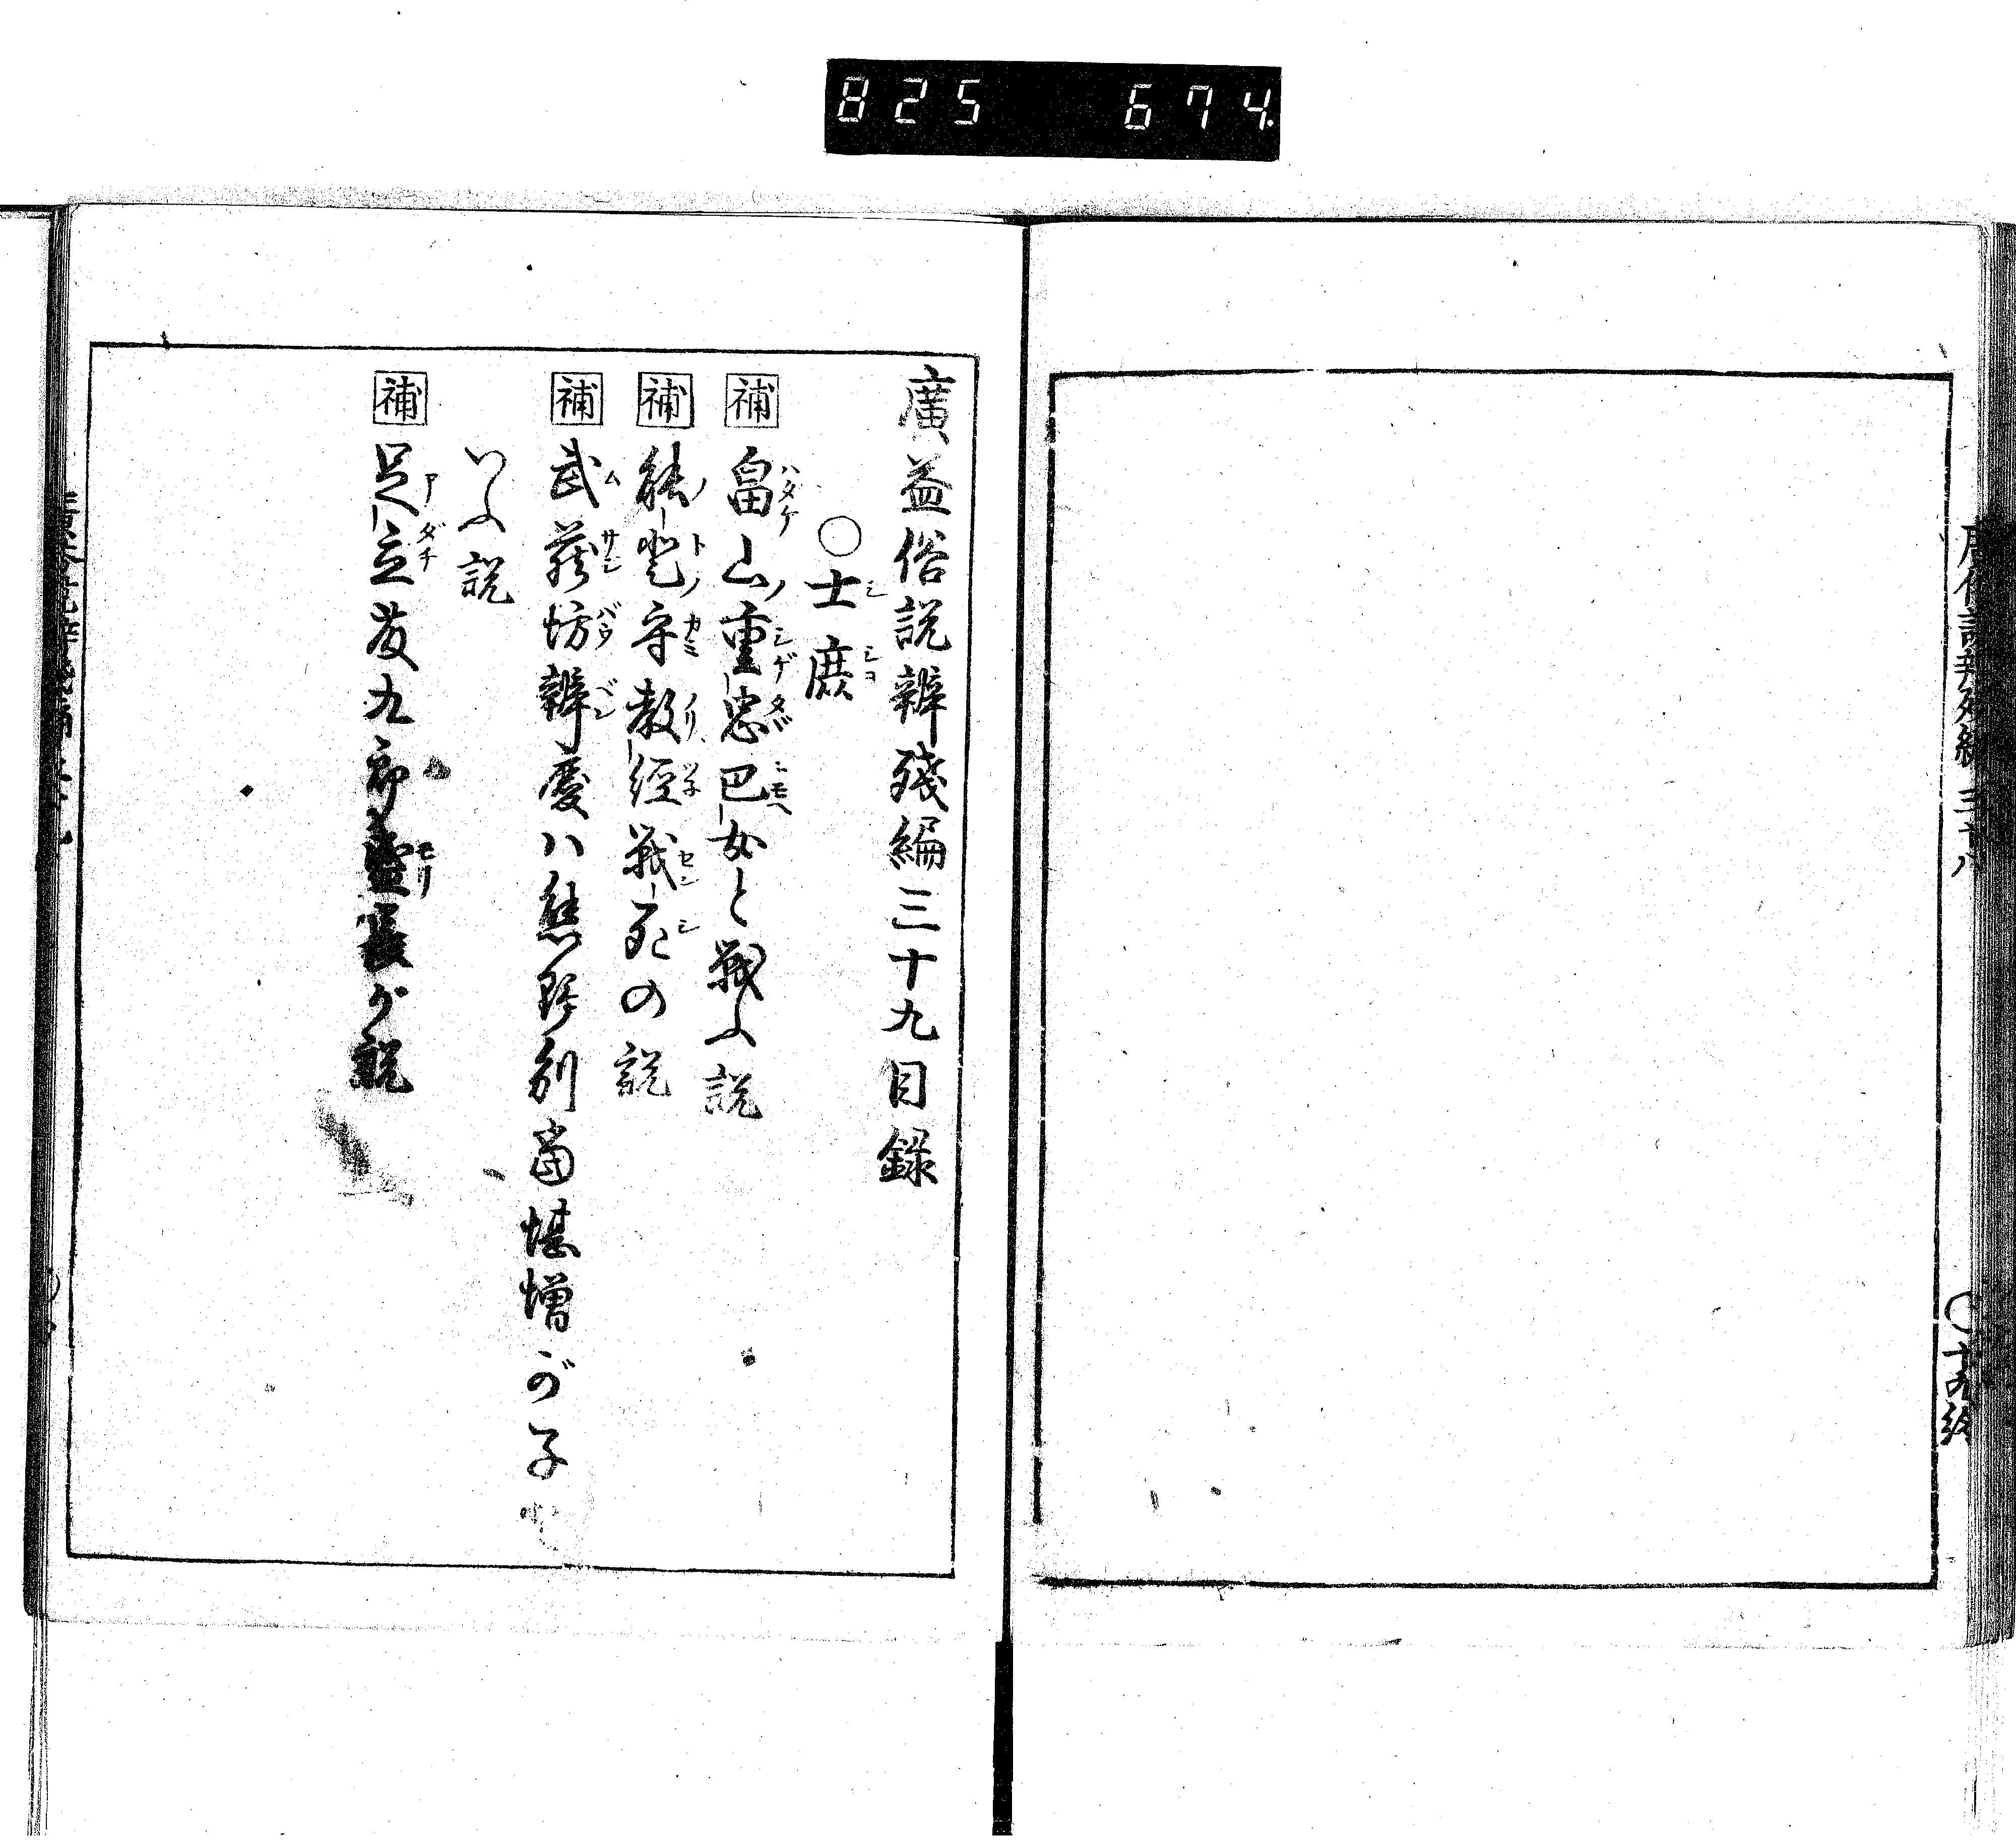 825 674
廣益俗説辨殘編三十九目録
○士庶
補 畠山重忠巴女と戦ふ説
補 能登守教經戦死の説
補 武蔵坊辨慶ハ熊野別當堪增が子と
いふ説
補 足立藤九郎盛長が説